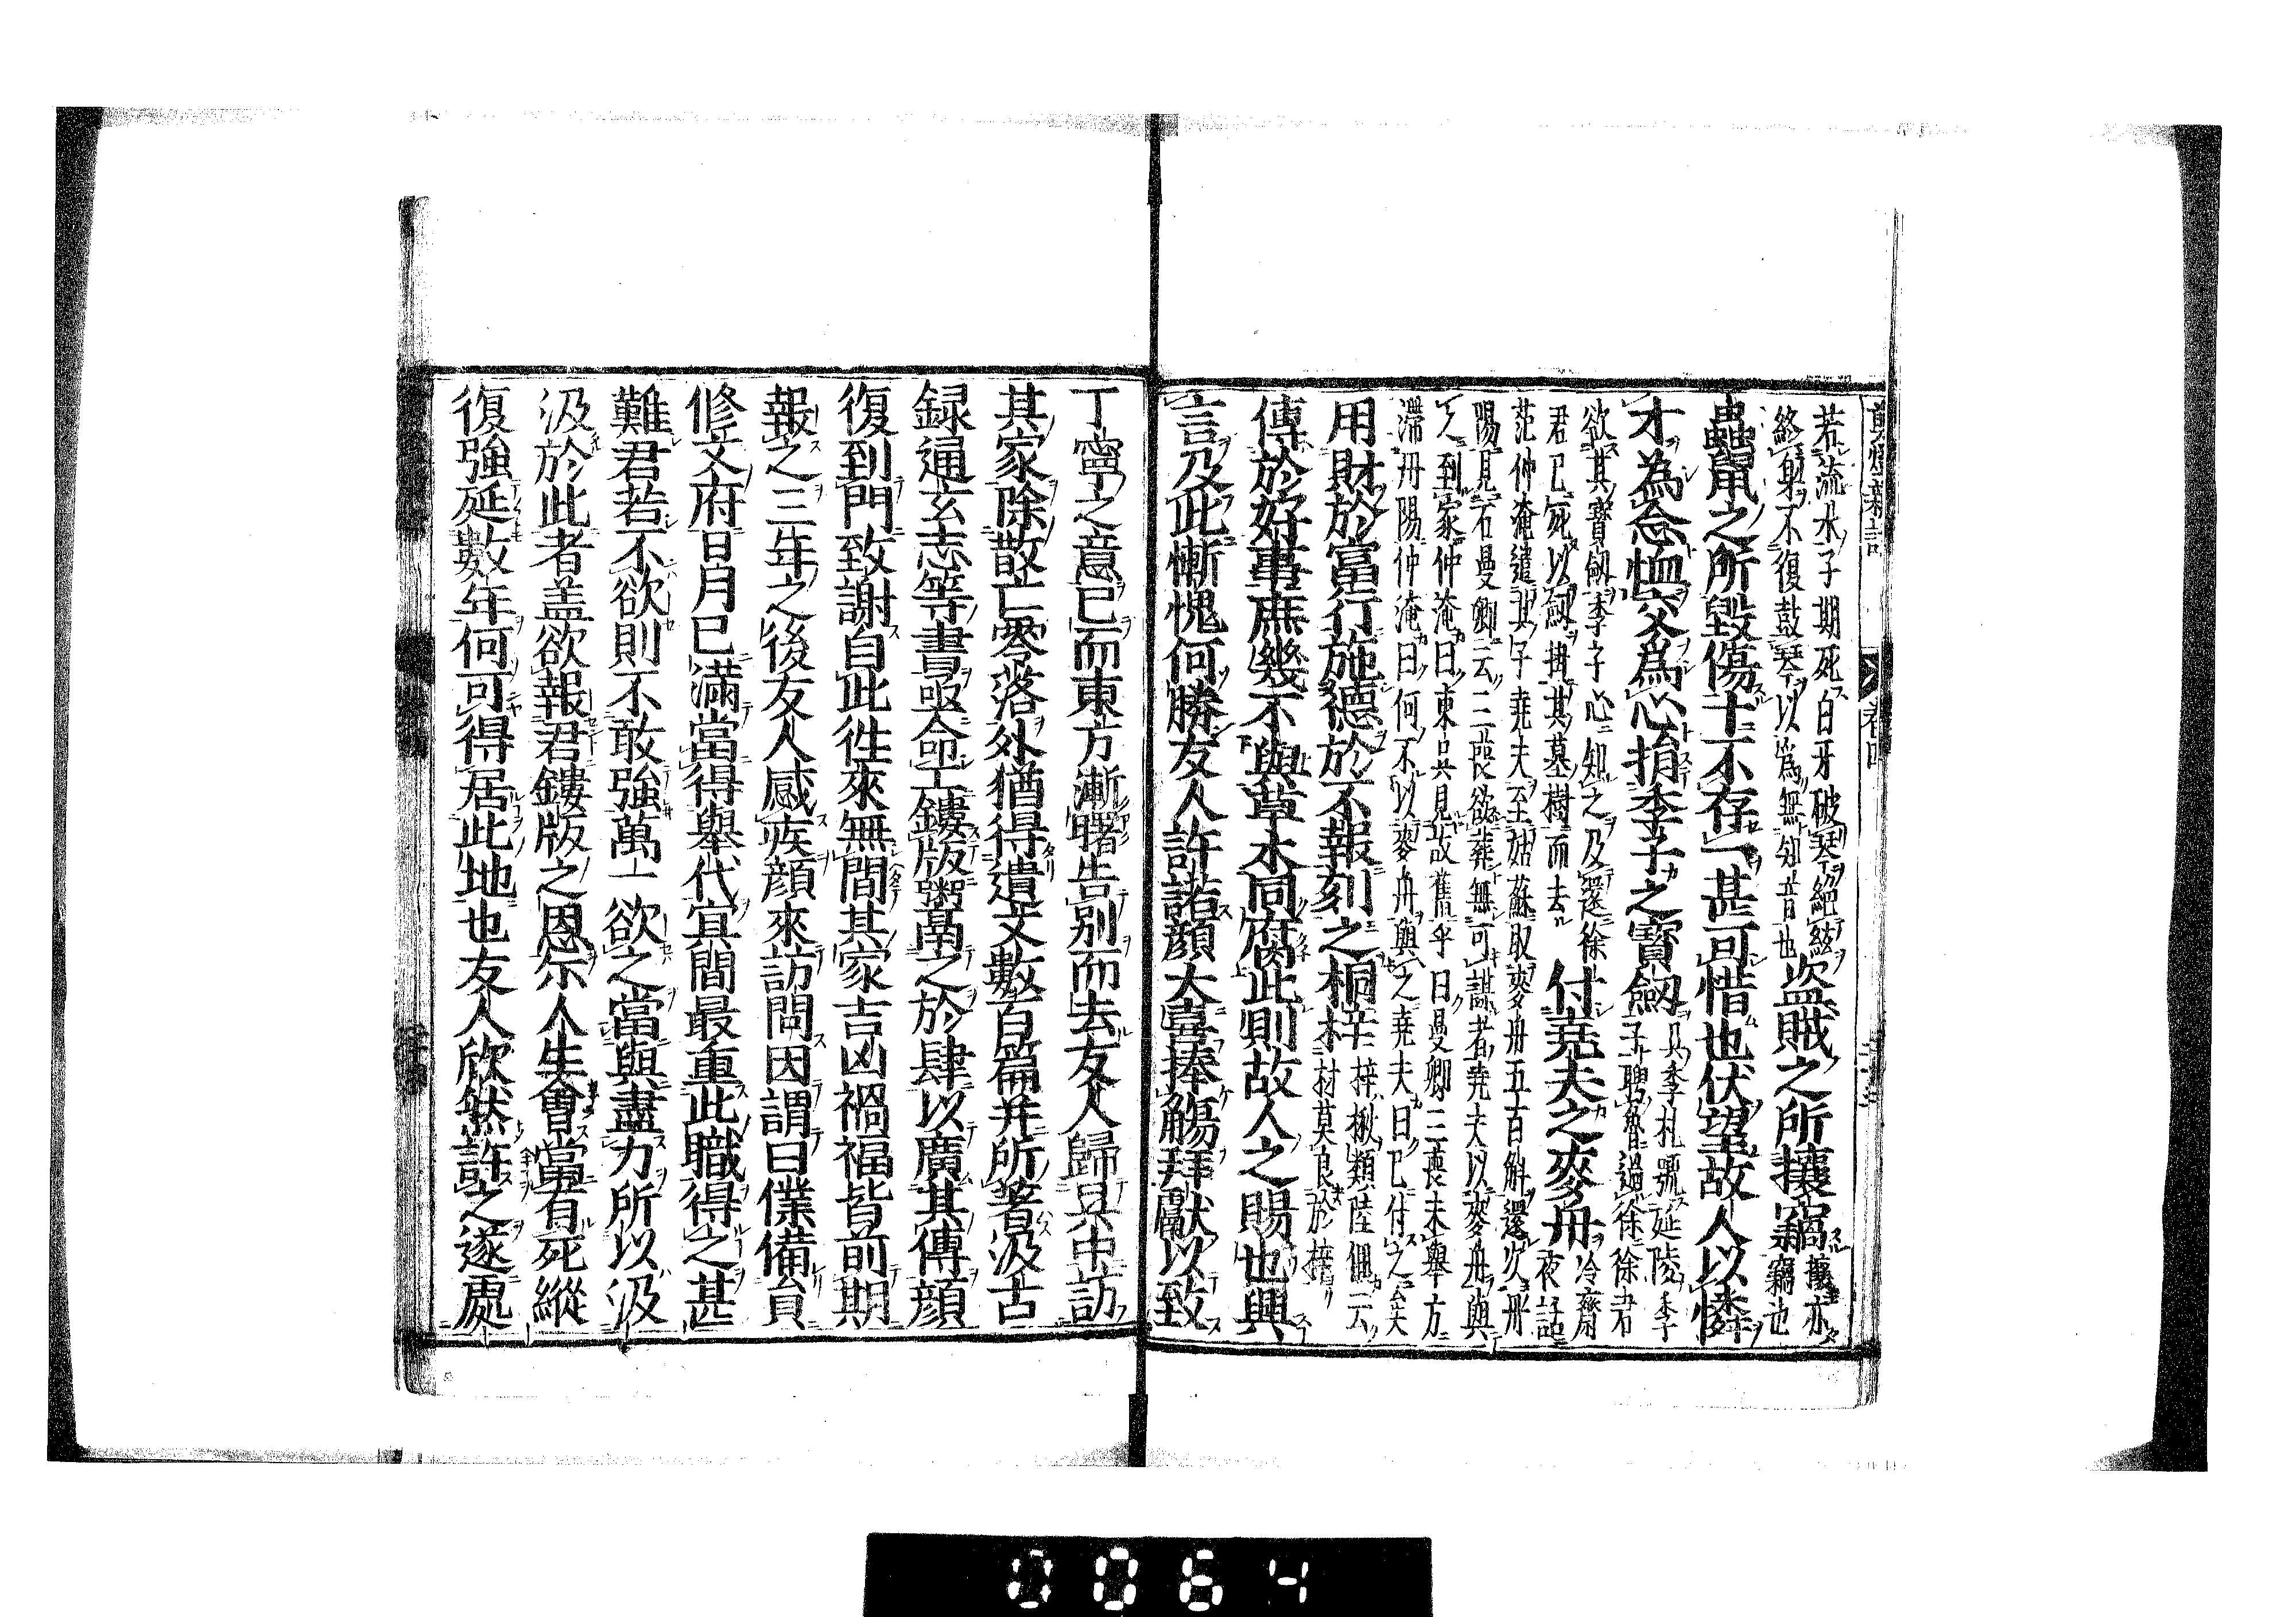 剪燈新話 卷四
若流水子期死白牙破琴絕絃
終身不復鼓琴以為無知音也
盜賊之所攘竊
攘亦
竊也
蟲鼠之所毀傷十不存一甚可惜也伏望故人以憐
才為念恤交爲心捐季子之寶劔
吳季札號延陵季
子聘魯過徐徐君
欲其寶劔季子心知之及還徐
君已死以劔掛其墓樹而去
付堯夫之麥舟
冷齋
夜話
范仲淹遣其子堯夫至姑蘇取麥舟五百斛還次丹
陽見石曼卿云三喪欲葬無可謀者堯夫以麥舟與
之到家仲淹曰東吳見故舊乎曰曼卿三喪未舉方
滯丹陽仲淹曰何不以麥舟與之堯夫曰已付之矣
用財於當行施德於不報刻之桐梓
梓楸類陸佃云
材莫良於梓
傳於好事庶幾不與草木同腐此則故人之賜也興
言及此慚愧何勝友人許諾顔大喜捧觴拜獻以致
丁寧之意已而東方漸曙告別而去友人歸吳中訪
其家除散亡零落外猶得遺文數百篇并所著汲古
録通玄志等書亟命工鏤版鬻之於肆以廣其傳顔
復到門致謝自此徃來無間其家吉凶禍福皆前期
報之三年之後友人感疾顔來訪問因謂曰僕備員
修文府日月已滿當得舉代冥間最重此職得之甚
難君若不欲則不敢強萬一欲之當與盡力所以汲
汲於此者盖欲報君鏤版之恩尔人生會當有死縱
復強延數年何可得居此地也友人欣然許之遂處
0064